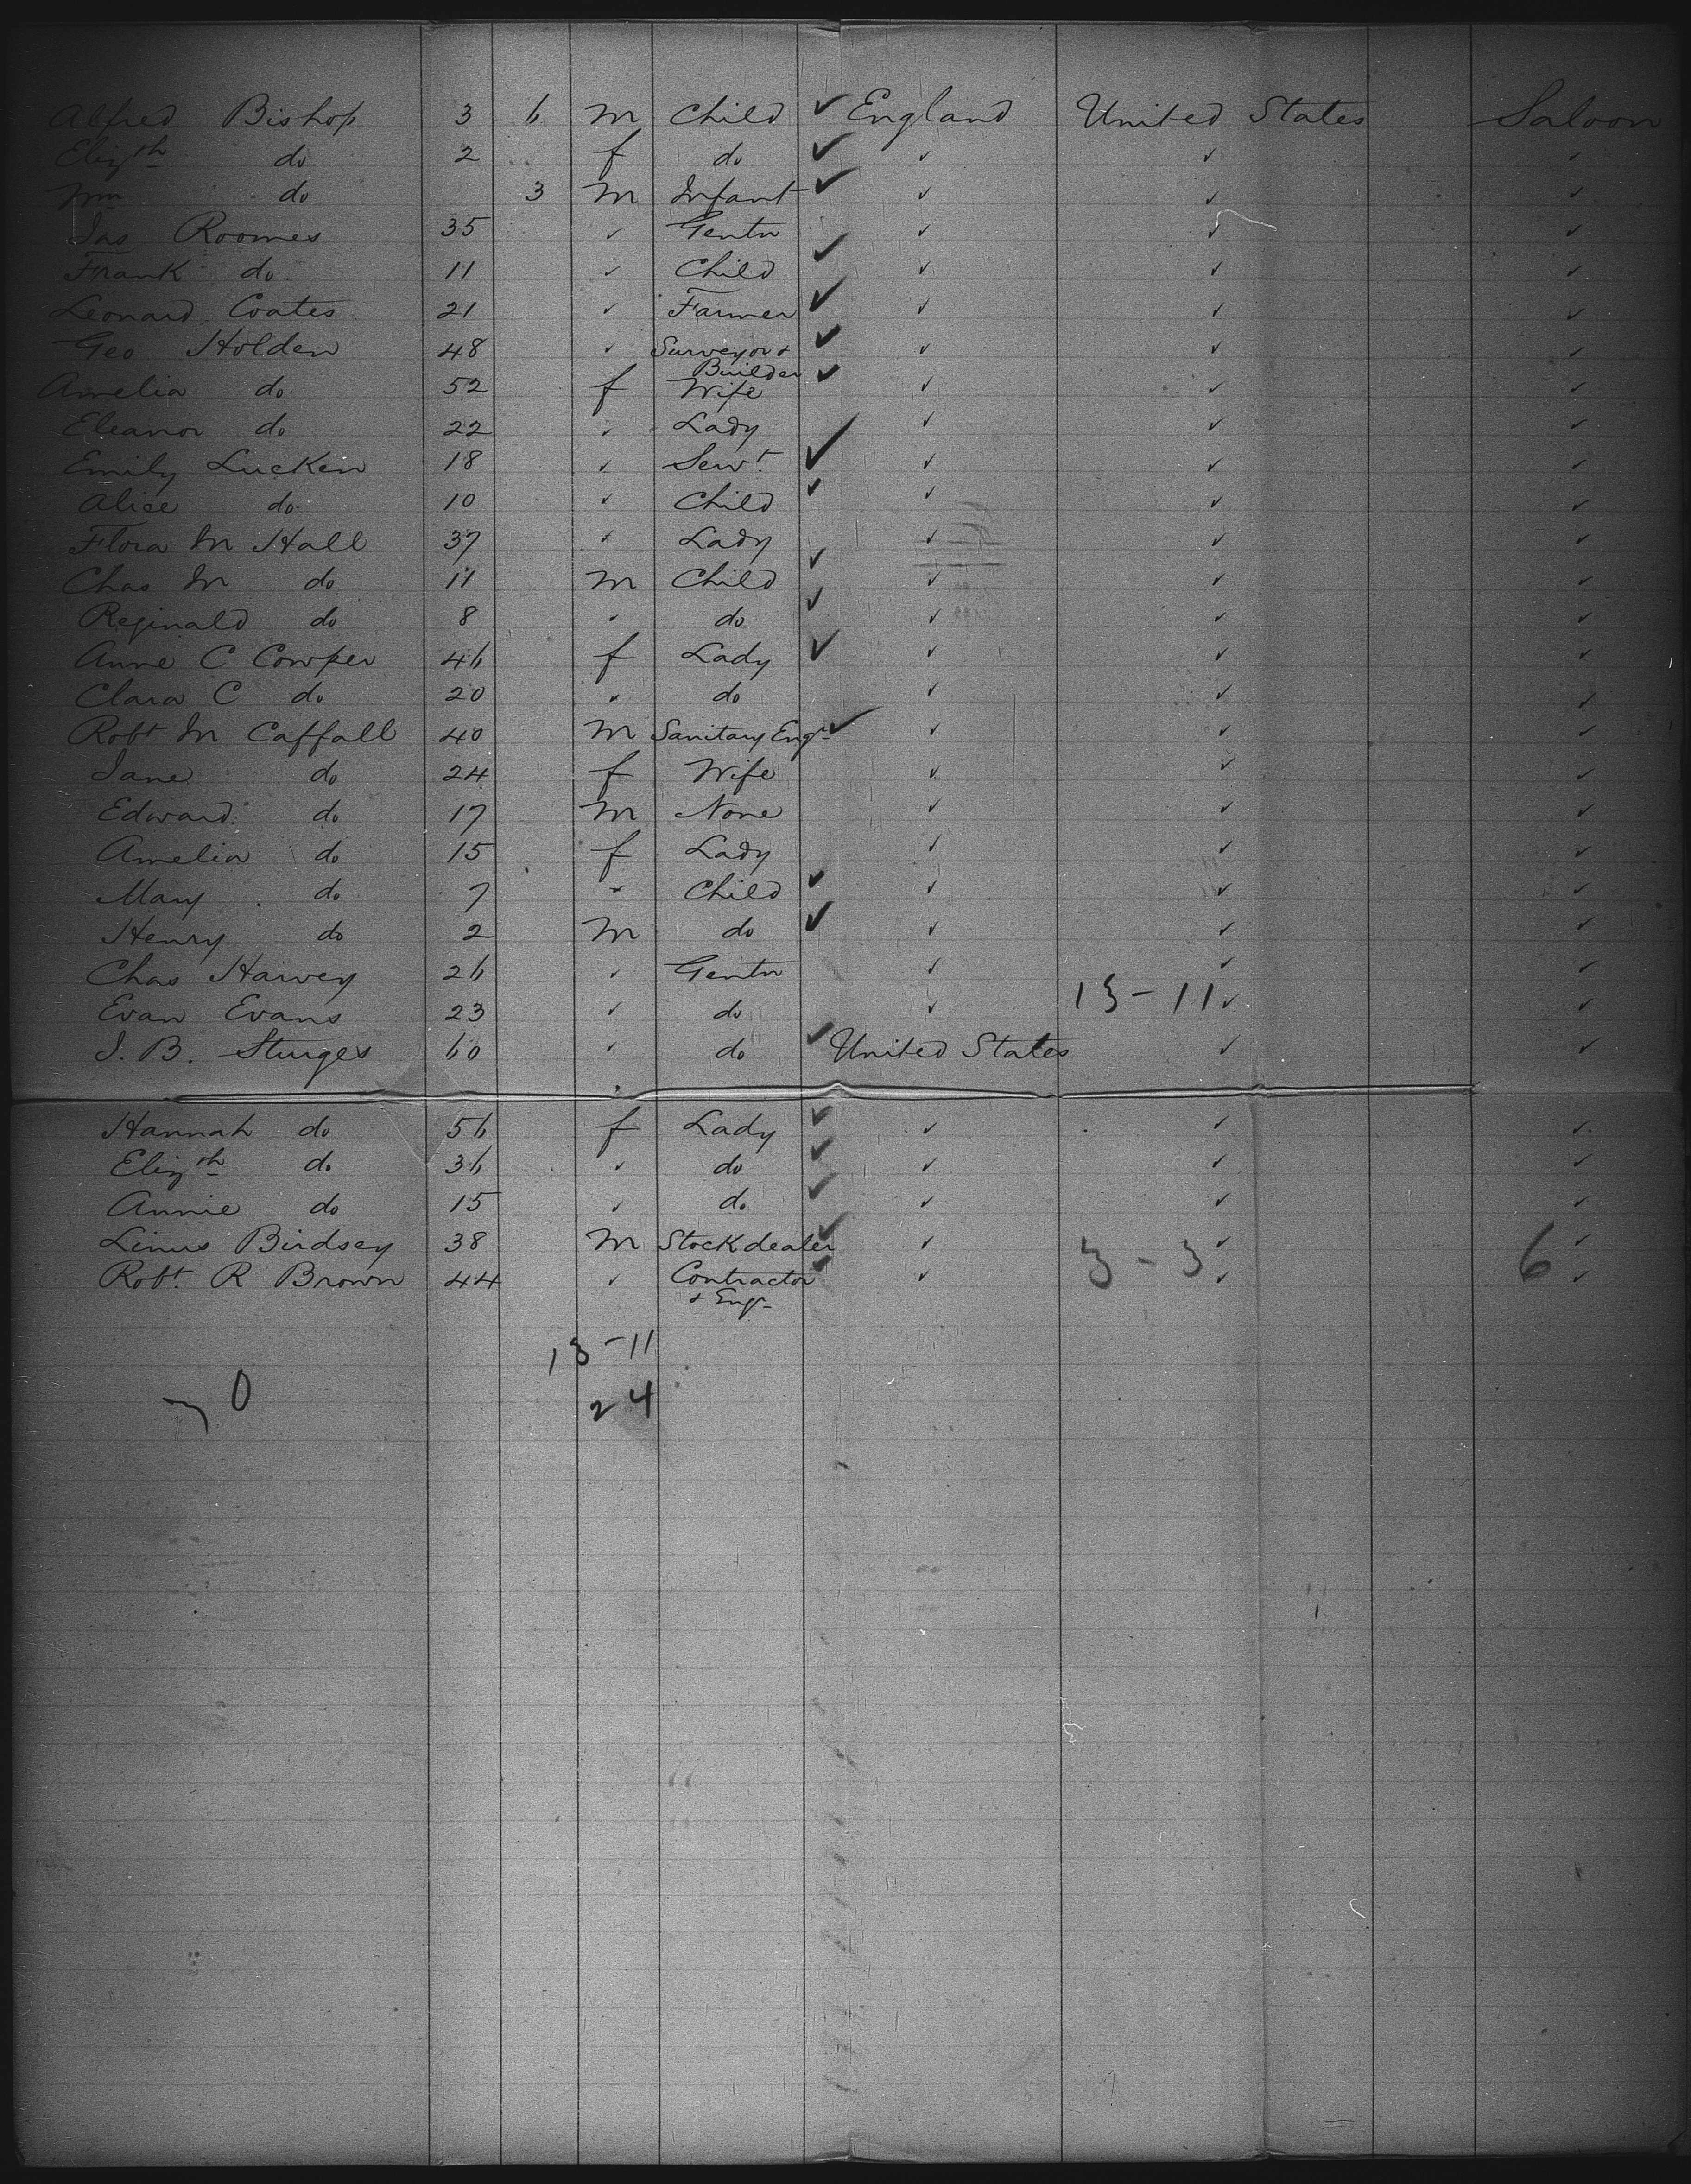 Alfred Bishop 3 6 m Child ✓ England United States Saloon
Elizth do 2 f do ✓ ✓ ✓ ✓
Wm do 3 m Infant ✓ ✓ ✓ ✓
Jas Roomes 35 ✓ Gentn ✓ ✓ ✓
Frank do 11 ✓ Child ✓ ✓ ✓ ✓
Leonard Coates 21 ✓ Farmer ✓ ✓ ✓ ✓
Geo Holden 48 ✓ Surveyor & ✓ ✓ ✓ ✓
Builder
Amelia do 52 f Wife ✓ ✓ ✓ ✓
Eleanor do 22 ✓ Lady ✓ ✓ ✓
Emily Lucken 18 ✓ Servt. ✓ ✓ ✓ ✓
Alice do 10 ✓ Child ✓ ✓ ✓ ✓
Flora M Hall 37 ✓ Lady ✓ ✓ ✓
Chas M do 11 m Child ✓ ✓ ✓ ✓
Reginald do 8 ✓ do ✓ ✓ ✓ ✓
Anne C Cowper 46 f Lady ✓ ✓ ✓ ✓
Clara C do 20 ✓ do ✓ ✓ ✓
Robt M Caffall 40 m Sanitary Engr ✓ ✓ ✓ ✓
Jane do 24 f Wife ✓ ✓ ✓
Edward do 17 m None ✓ ✓ ✓
Amelia do 15 f Lady ✓ ✓ ✓
Mary do 7 ✓ Child ✓ ✓ ✓ ✓
Henry do 2 m do ✓ ✓ ✓ ✓
Chas Harvey 26 ✓ Gentn ✓ ✓ ✓
Evan Evans 23 ✓ do ✓ 13-11 ✓ ✓
J. B. Sturges 60 ✓ do ✓ United States ✓ ✓
Hannah do 56 f Lady ✓ ✓ ✓ ✓
Elizth do 36 ✓ do ✓ ✓ ✓ ✓
Annie do 15 ✓ do ✓ ✓ ✓ ✓
Linus Birdsey 38 m Stock dealer ✓ ✓ ✓ ✓
Robt. R Brown 44 ✓ Contractor ✓ ✓ 3-3 ✓ 6 ✓
& Engr
13-11
24